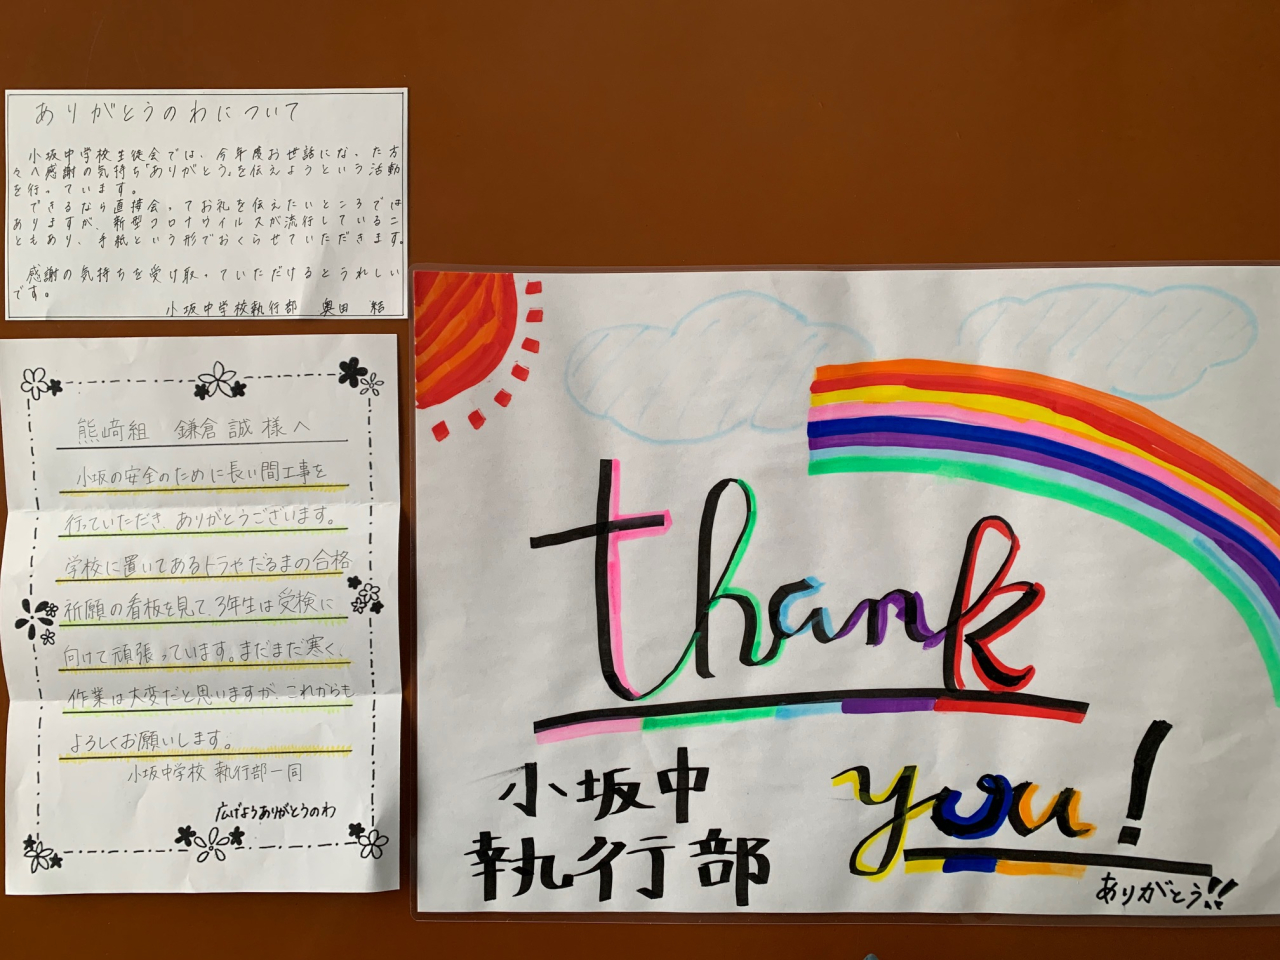 ありがとうのわについて
小坂中学校生徒会では、今年度お世話になった方
々へ感謝の気持ち「ありがとう」を伝えようという活動
を行っています。
できるなら直接会ってお礼を伝えたいところでは
ありますが、新型コロナウイルスが流行しているこ
ともあり、手紙という形でおくらせていただきます。
感謝の気持ちを受け取っていただけるとうれしい
です。
小坂中学校執行部 奥田 結
熊﨑組 鎌倉誠様へ
小坂の安全のために長い間工事を
行っていただき、ありがとうございます。
学校に置いてあるトラやだるまの合格
祈願の看板を見て、3年生は受検に
向けて頑張っています。まだまだ寒く、
作業は大変だと思いますが、これからも
よろしくお願いします。
小坂中学校 執行部一同
広げようありがとうのわ
thank
you!
小坂中
執行部
ありがとう!!